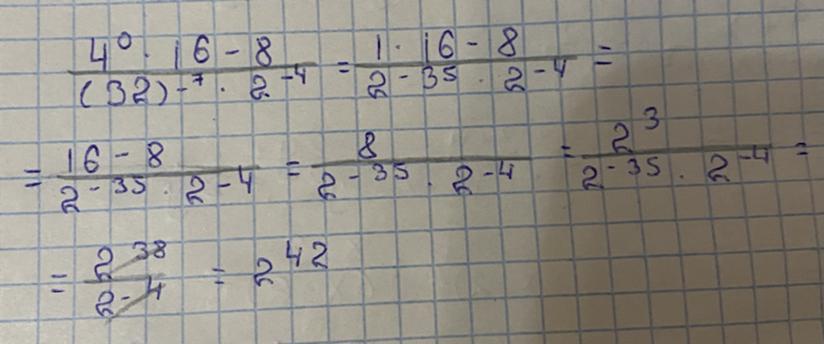 4⁰ · 16 - 8 / (32)⁻⁷ · 2⁻⁴ = 1 · 16 - 8 / 2⁻³⁵ · 2⁻⁴ =
= 16 - 8 / 2⁻³⁵ · 2⁻⁴ = 8 / 2⁻³⁵ · 2⁻⁴ = 2³ / 2⁻³⁵ · 2⁻⁴ =
= 2³⁸ / 2⁻⁴ = 2⁴²